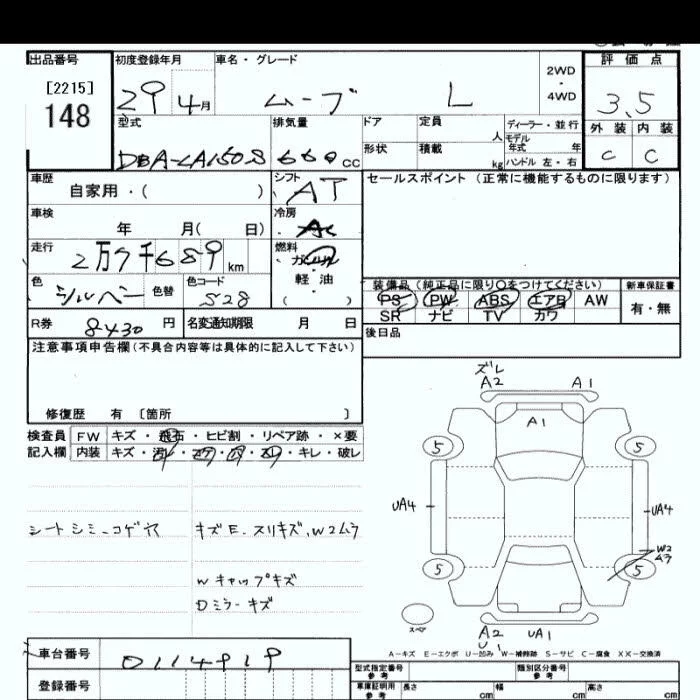 出品番号 初度登録年月 車名・グレード 評価点
[2215]
148
29 4月 ムーブ L 2WD・4WD 3.5
外装 内装
C C
型式 排気量 ドア 定員 人 ディーラー・並行
DBA-LA150S 660cc 形状 積載 kg モデル年式 年 ハンドル 左・右
車歴 自家用・( ) シフト AT セールスポイント (正常に機能するものに限ります)
車検 年 月( 日) 冷房 AC
走行 2万7千689km 燃料 ガソリン
軽・油
( )
色 シルバー 色替 色コード S28
装備品 (純正品に限り○をつけてください) 新車保証書
PS PW ABS エアB AW 有・無
SR ナビ TV カワ
R券 8430円 名変通知期限 月 日 後日品
注意事項申告欄 (不具合内容等は具体的に記入して下さい)
修復歴 有 〔箇所 〕
検査員記入欄 FW キズ・飛石・ヒビ割・リペア跡・×要
内装 キズ・ ・キレ・破レ
シートシミ、コゲヤ
キズE、スリキズ、W2ムラ
Wキャップキズ
Dミラーキズ
ズレ
A2 A1
A1
5 5
UA4 UA4
5 5 W2
ムラ
スペア
A2 UA1
U1
A-キズ E-エクボ U-凹み W-補修跡 S-サビ C-腐食 XX-交換済
車台番号 0114919
型式指定番号 参考 類別区分番号 参考
登録番号 車庫証明用 参考 長さ cm 幅 cm 高さ cm